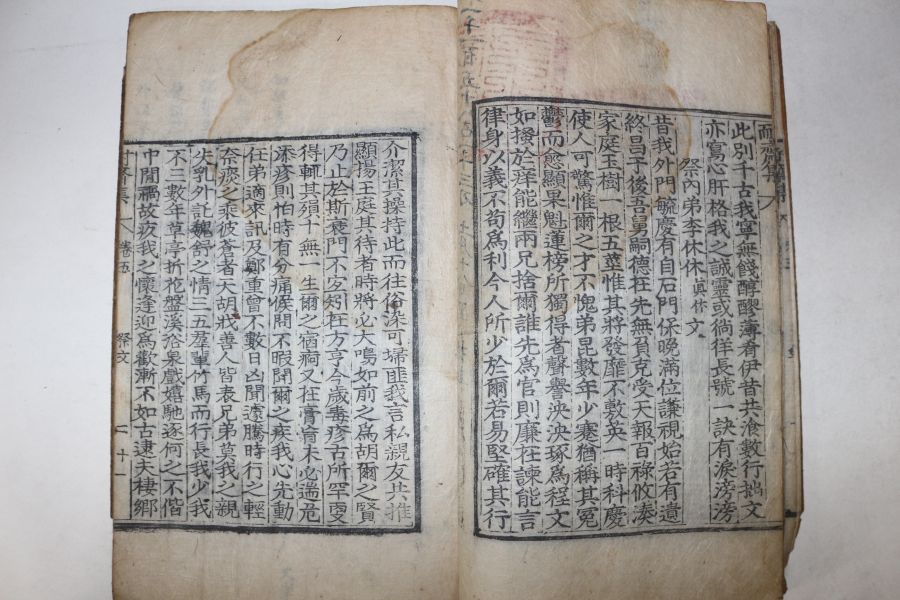 此別千古我寧無餞醇醪薄肴伊昔共飡數行拙文
亦寫心肝格我之誠靈或徜徉長號一訣有淚滂滂
祭內弟李休休眞休文
昔我外門毓慶有自石門保晚滿位謙視始若有遺
終昌于後吾舅嗣德在先無負克受天報百祿攸湊
家庭玉樹一根五莖惟其將發靡不敷英一時科慶
使人可驚惟爾之才不愧弟昆數年少蹇猶稱其冤
鬱而愈顯果魁蓮榜所獨得者聲譽泱泱琢爲程文
如搔於痒能繼兩兄捨爾誰先爲官則廉在諫能言
律身以義不苟爲利今人所少於爾若易堅確其行
介潔其操持此而往俗染可埽匪我言私親友共推
顯揚王庭其待者時將必大鳴如前之爲胡爾之賢
乃止於斯衰門不空矧在方亨今歲毒疹古所罕更
得輒其殞十無一生爾之宿痾又在膏肓未必遄危
添疹則怕時有分痛候問不暇聞爾之疾我心先動
在弟適來訊及鄭重曾不數日凶聞遽騰時行之輕
奈療之乘彼蒼者天胡戕善人皆表兄弟莫我少親
失乳外託魏舒之情三五羣輩竹馬而行長我少我
不三數年草亭折花盤溪
戲嬉馳逐何之不偕
中間禍故
我之懷逢迎爲歡漸不如古逮夫棲鄉
卷五
祭文
二十一